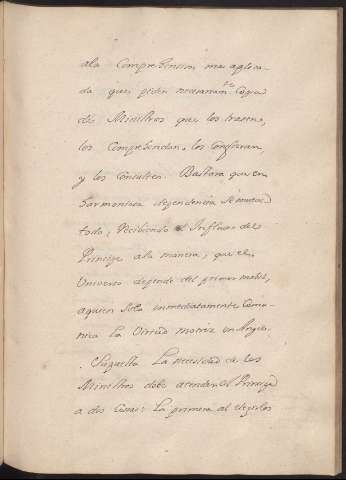 ala Comprehension mas agiga-
da que piden necesariam.te Copia
de Ministros que los traten,
los Comprehendan, los Confieran,
y los Consulten Bastara que en
harmoniosa dependencia se mueva
todo; Recibiendo el Influxo del
Principe ala manera, que el
Universo depende del primer mobil,
aquien solo inmediatamente Comu-
nica la Virtud motriz un Angel.
Supuesta la necesidad de los
Ministros debe atender el Principe
a dos Cosas: La primera al elegirlos